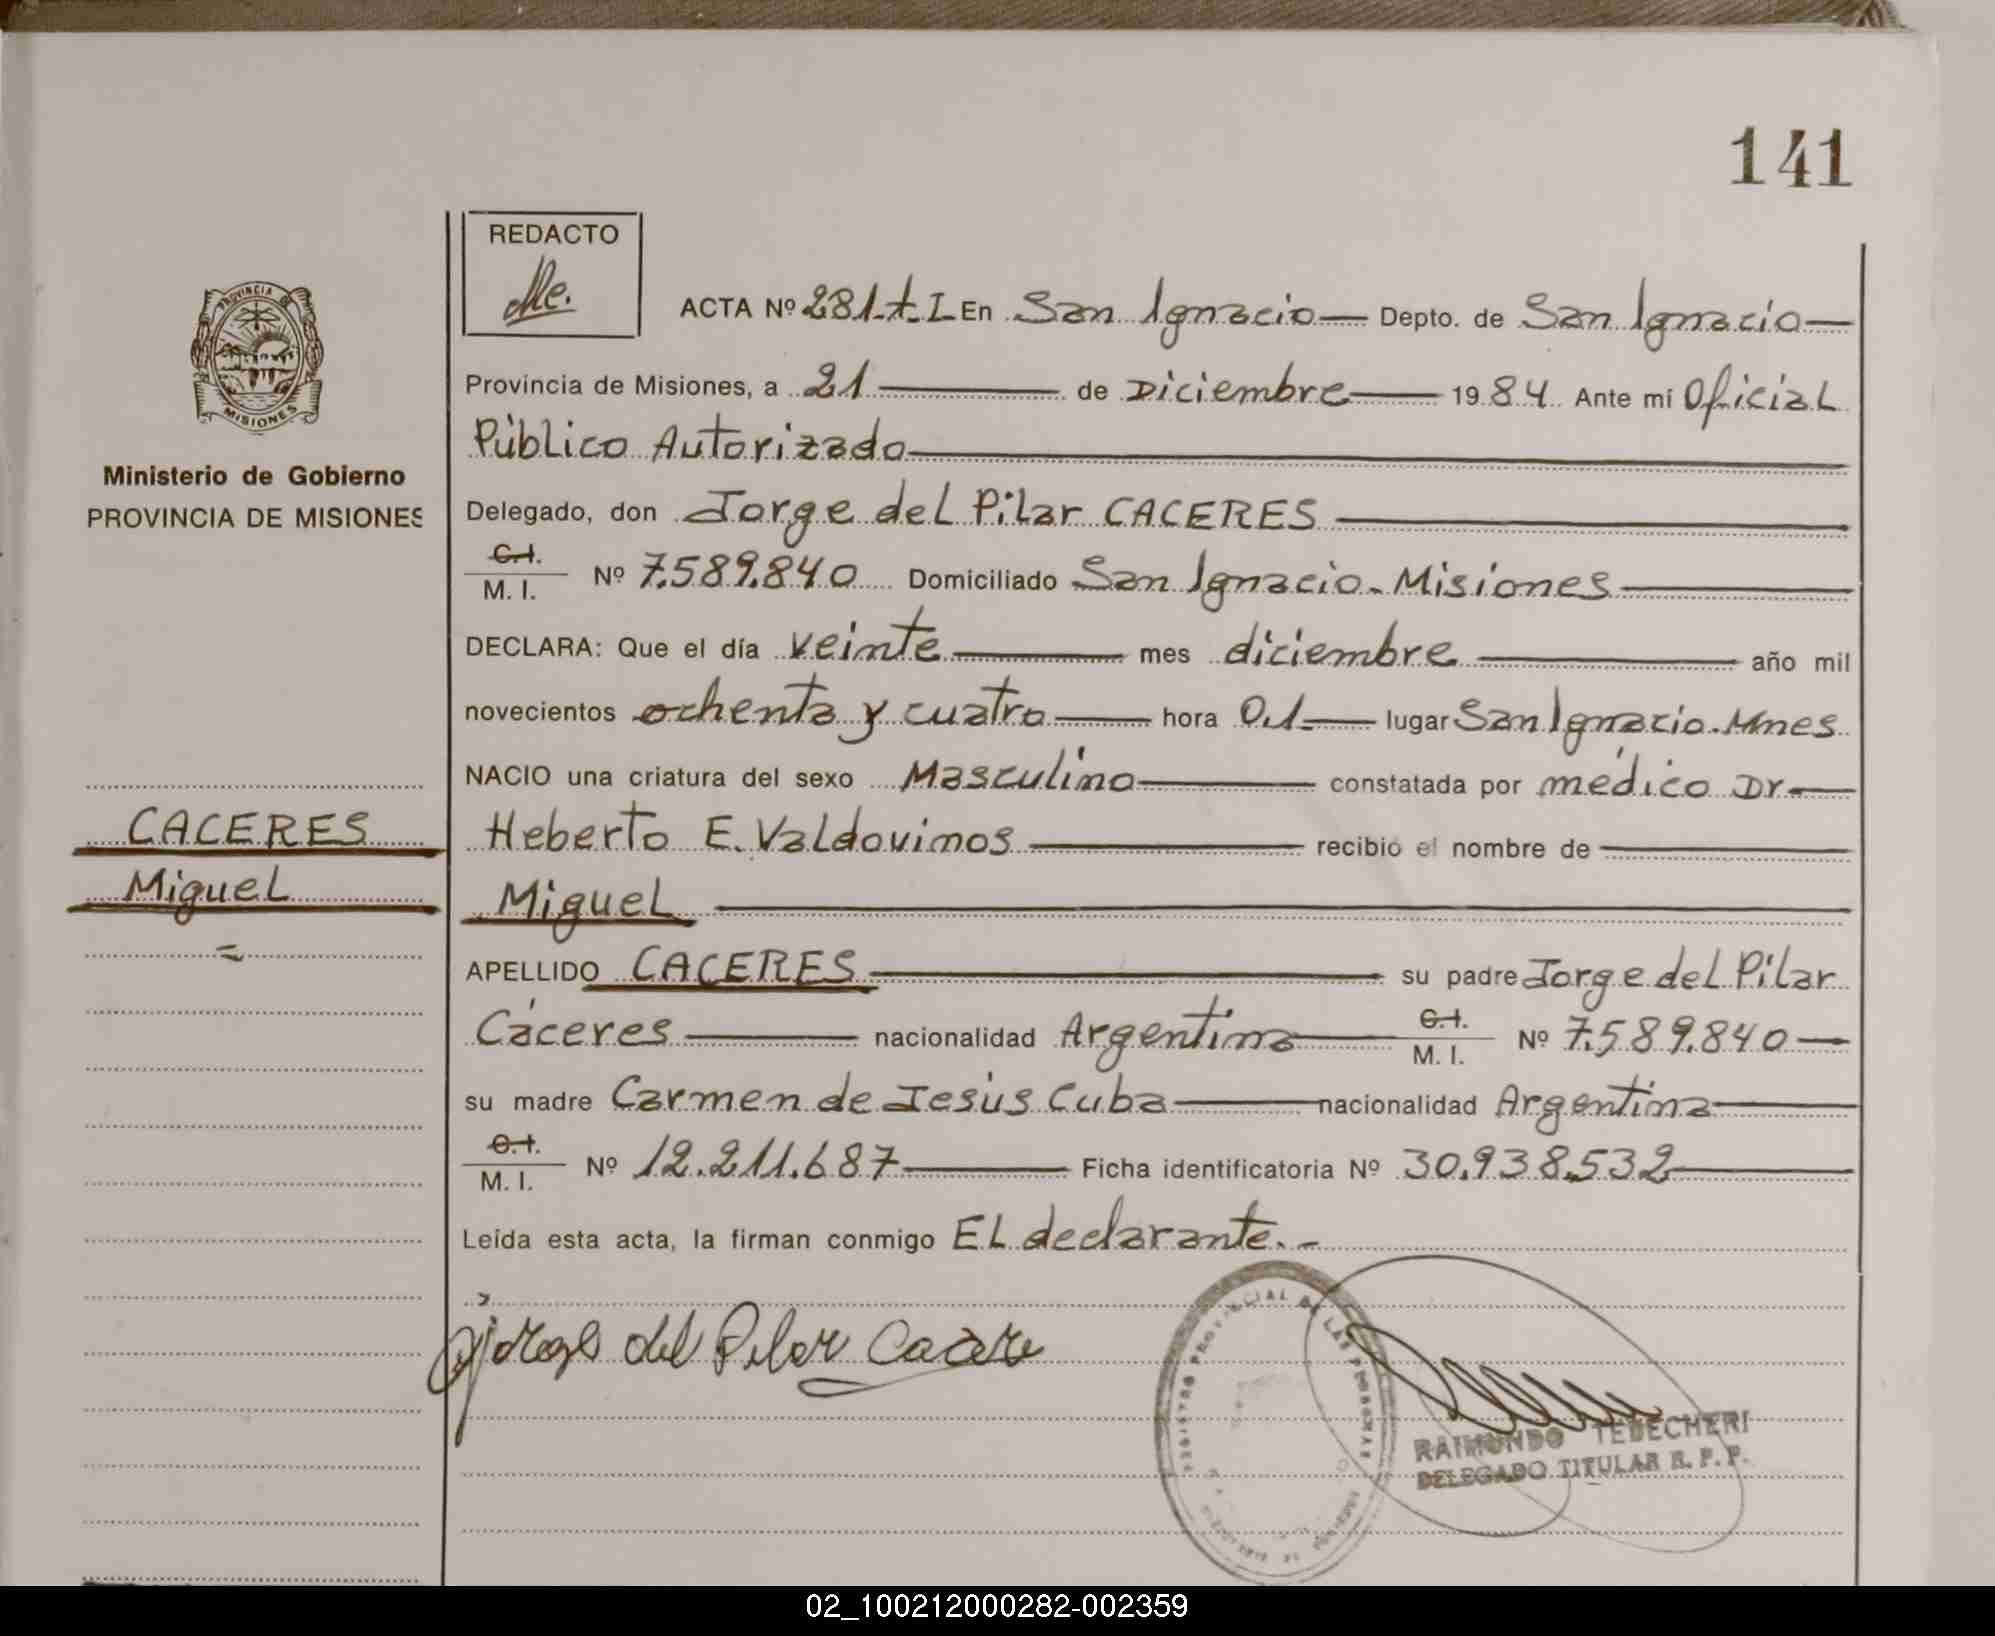 141
REDACTO
PROVINCIA DE
MISIONES
Ministerio de Gobierno
PROVINCIA DE MISIONES
ACTA Nº 281-t-I- En San Ignacio Depto. de San Ignacio
Provincia de Misiones, a 21 de Diciembre 1984 Ante mí Oficial
Público Autorizado
Delegado, don Jorge del Pilar CACERES
C.I.
M. I. Nº 7.589.840 Domiciliado San Ignacio-Misiones
DECLARA: Que el día veinte mes diciembre año mil
novecientos ochenta y cuatro hora 0.1 lugar San Ignacio-Mnes
NACIO una criatura del sexo Masculino constatada por médico Dr
CACERES
Miguel
Heberto E. Valdovinos recibió el nombre de
Miguel
APELLIDO CACERES su padre Jorge del Pilar
Cáceres nacionalidad Argentina C.I. M. I. Nº 7.589.840
su madre Carmen de Jesús Cuba nacionalidad Argentina
C.I.
M. I. Nº 12.211.687 Ficha identificatoria Nº 30.938.532
Leída esta acta, la firman conmigo El declarante.-
Jorge del Pilar Cacere
REGISTRO PROVINCIAL DE LAS PERSONAS
RAIMUNDO TEDECHERI
DELEGADO TITULAR R. P. P.
02_100212000282-002359